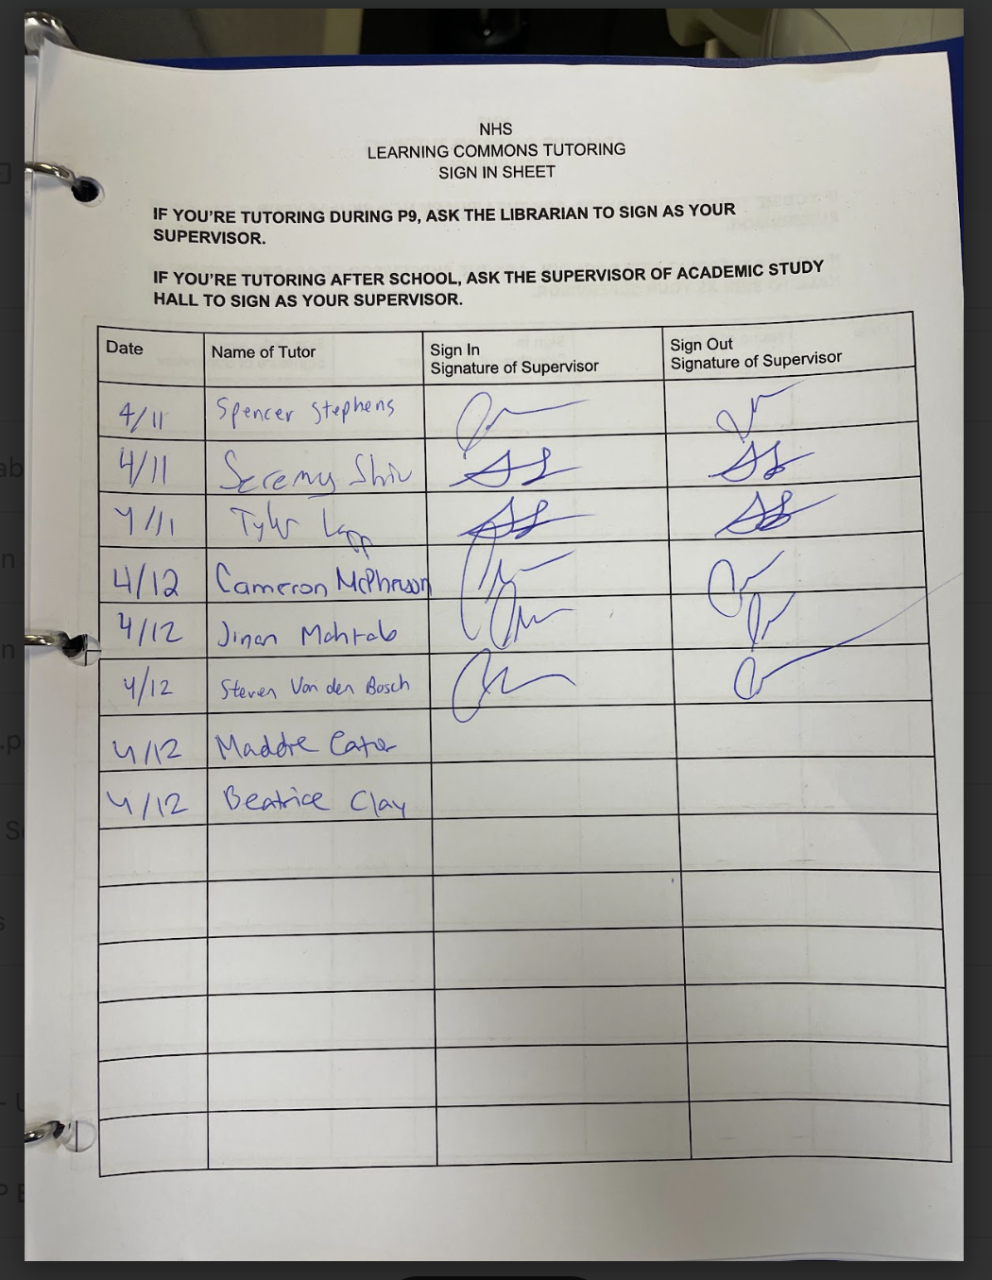 NHS
LEARNING COMMONS TUTORING
SIGN IN SHEET
IF YOU'RE TUTORING DURING P9, ASK THE LIBRARIAN TO SIGN AS YOUR
SUPERVISOR.
IF YOU'RE TUTORING AFTER SCHOOL, ASK THE SUPERVISOR OF ACADEMIC STUDY
HALL TO SIGN AS YOUR SUPERVISOR.
Date Name of Tutor Sign In Sign Out
Signature of Supervisor Signature of Supervisor
4/11 Spencer Stephens
4/11 Jeremy Shiv
4/11 Tyler Lapp
4/12 Cameron McPherson
4/12 Jinan Mahtab
4/12 Steven Van den Bosch
4/12 Maddie
4/12 Beatrice Clay